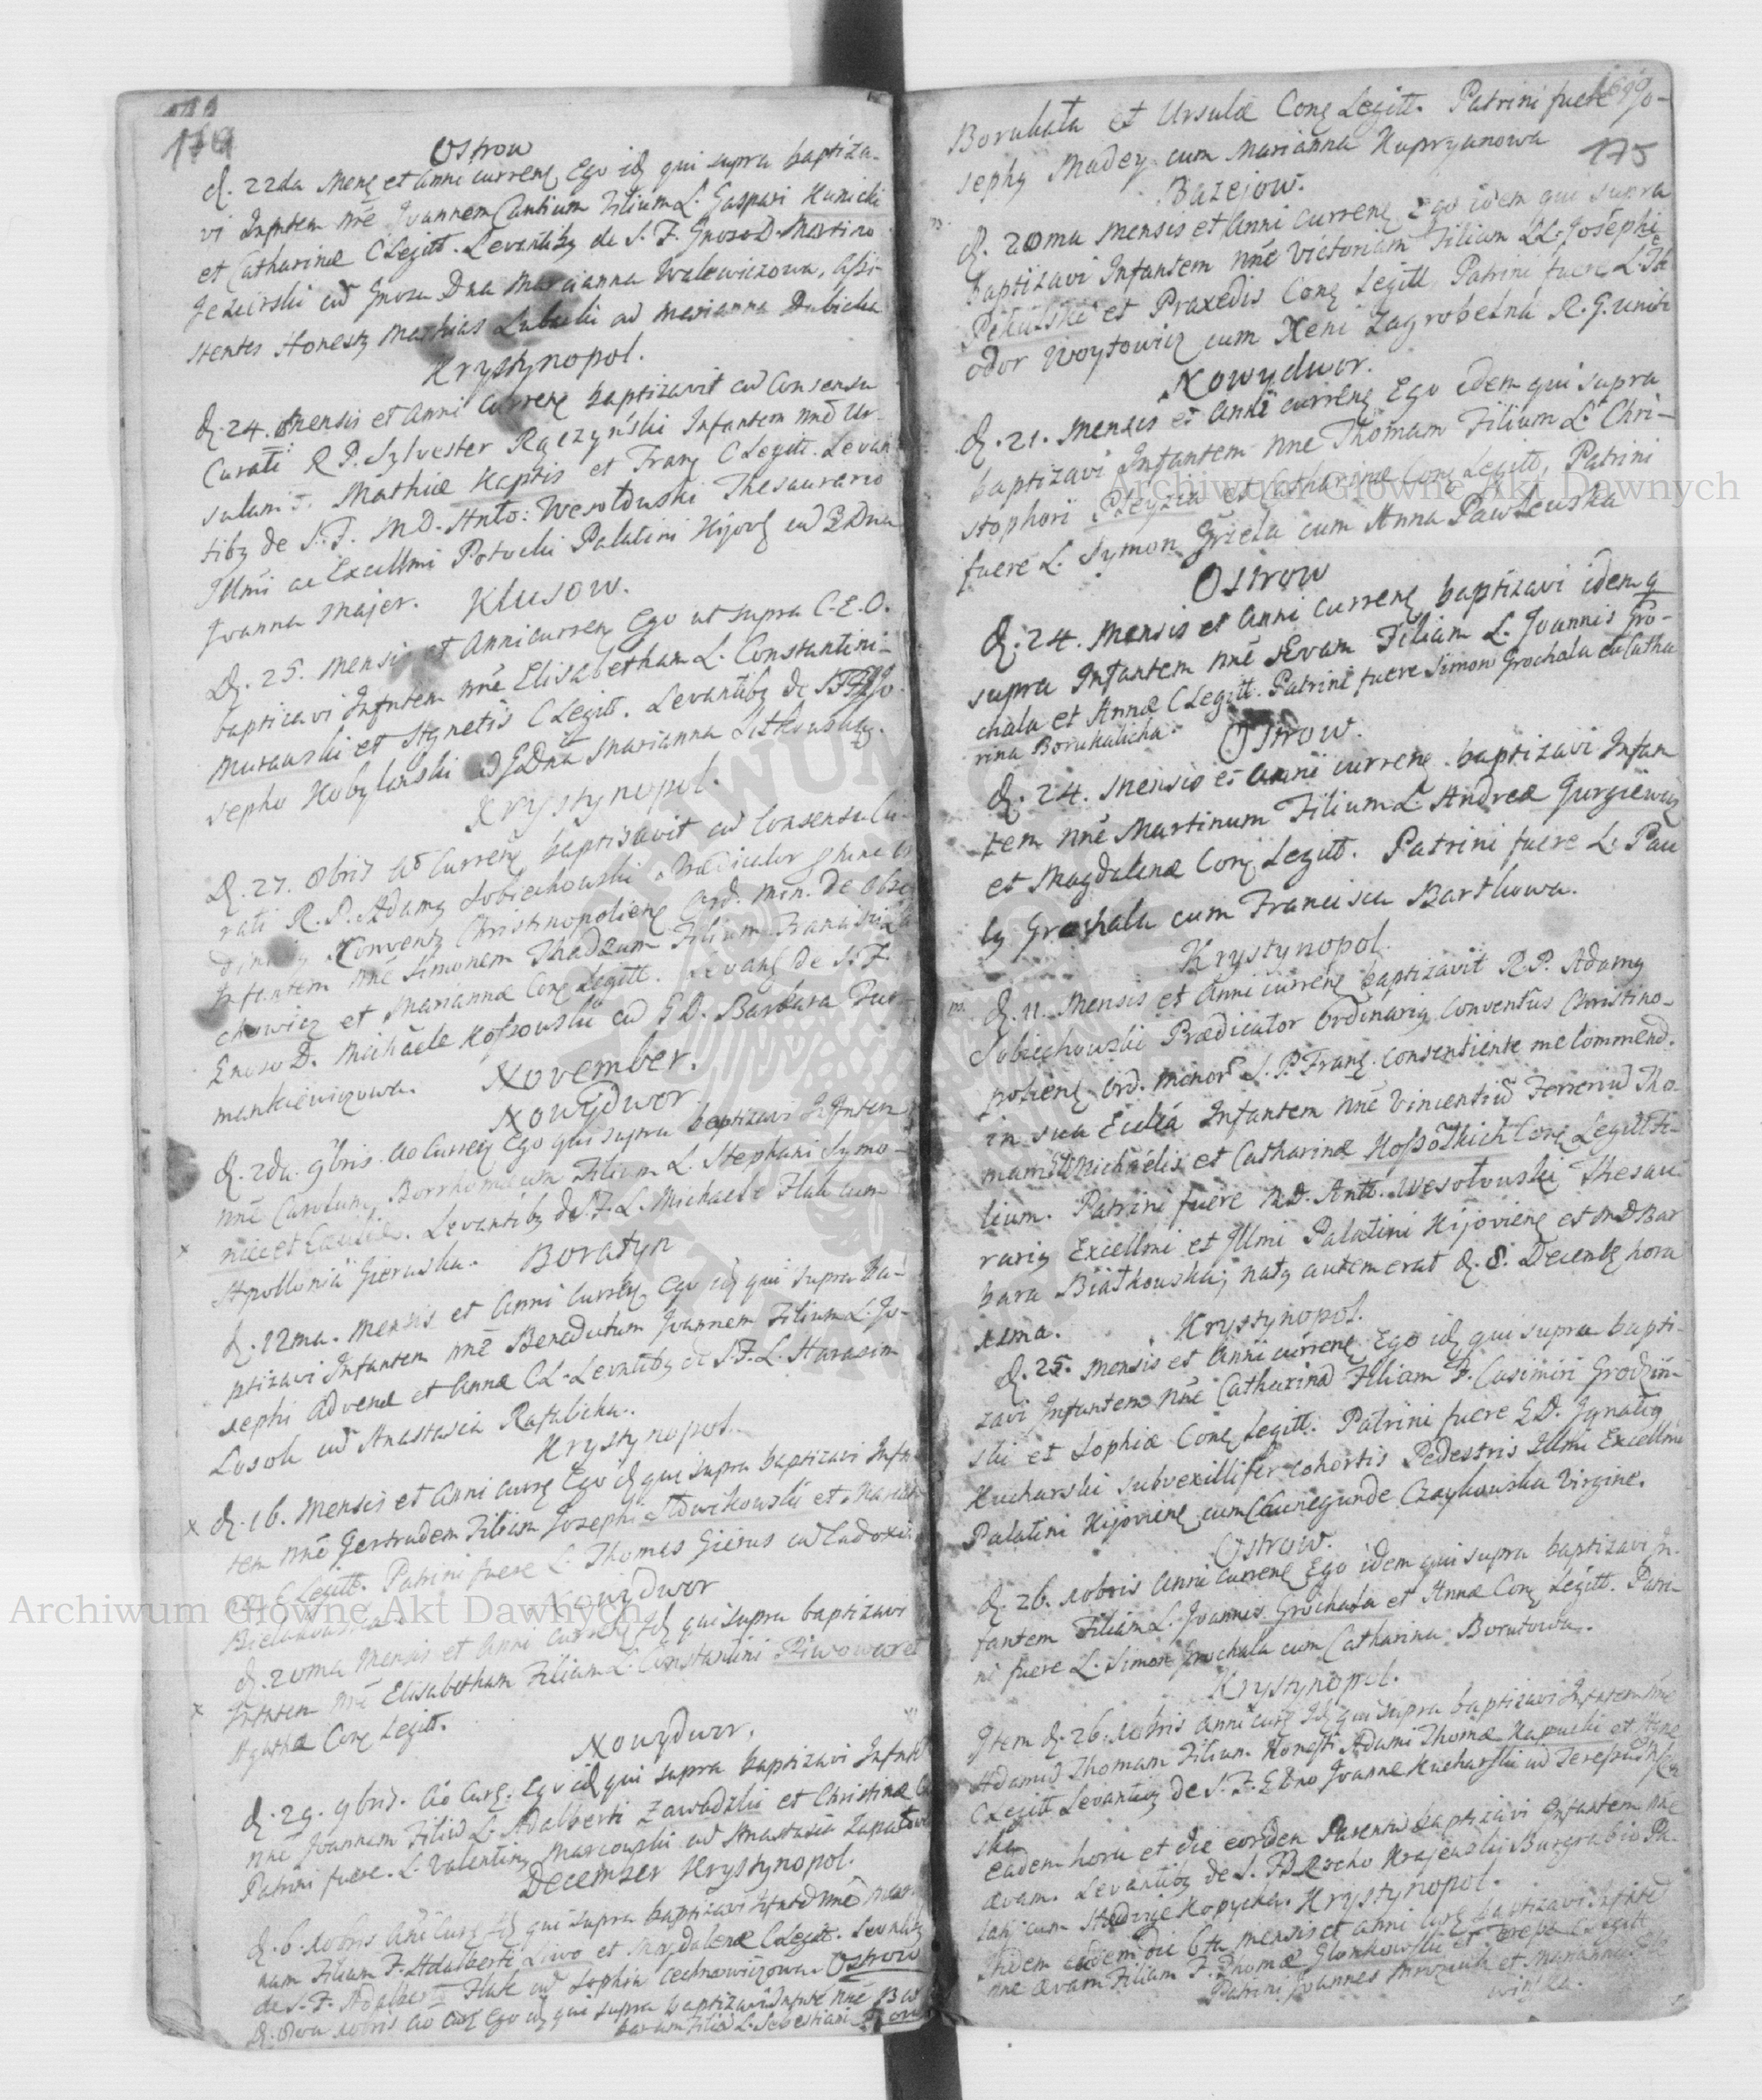 174
Ostrow
d. 22da Mens et Anni curren Ego id qui supra baptiza-
vi Infntem nne Joannem Cantium Filium L. Gaspari Kunicki
et Catharinæ C Legitt. Levantibq de S. F. Gnoso D. Martino
Jezierski cu Gnosa Dna Marcianna Walewiczowa, Assi-
stentes Honestq Mathias Lubecki cu Marianna Dubicka
Krystynopol.
d. 24. Mensis et Anni Curren baptizavit cu Consensu
Curati R. P. Sylvester Raczyński Infantem nne Ur-
sulam F. Mathiæ Kaptis et Franc C Legitt. Levan
tibq de S. F. M. D. Anto: Wesołowski Thesaurario
Illmi ac Excellmi Potocki Palatini Kijov cu G Dna
Joanna Majer. Klusow.
D. 25. Mensis et Anni curren Ego ut supra C. E. O.
baptizavi Infntem nne Elisabetham L. Constantini
Murawski et Agnetis C Legitt. Levantibq de S. F. Jo-
sepho Kobylański cu G Dna Marianna Litkowska.
Krystynopol.
D. 27. 8bris Ao Curren baptizavit cu Consensu Cu-
rati R. P. Adamq Sobiechowski Prædicator Or
dinariq Conventq Christinopoliens Ord. Min. De Obse
Infantem nne Simonem Thadæum Filium Francisci
chowicz et Mariannæ Conq Legitt. Levan de S. F.
Gnoso D. Michaele Kossowski cu G D. Barbara Fur-
mankiewiczowa. November.
Nowydwor
d. 2da. 9bris. Ao Curren Ego qui supra baptizavi Infntem
nne Carolum Borrhomæum Filium L. Stephani Symo-
nice et . Levantibq de S. F. L. Michaele Hluk cum
Apollonia Gieruska. Boratyn
d. 12ma. Mensis et Anni curren Ego id qui supra ba-
ptizavi Infantem nne Benedictum Joannem Filium L. Jo-
sephi Advenæ et Annæ C L. Levntibq de S. F. L. Harasim
Losoh cu Anastasia Rafalicha.
Krystynopol.
d. 16. Mensis et Anni curr Ego id qui supra baptizavi Infn
tem nne Gertrudem Filiam Josephi Adwikowski et Marian
næ C Legitt. Patrini fuere L. Thomas Gierus cu Eudoxi
Nowydwor
d. 20ma Mensis et Anni curren Id qui supra baptizavi
Infntem nne Elisabetham Filiam L. Constantini Piwowarek
Agathæ Conq Legitt.
Nowydwor.
d. 29. 9bris. Ao Curr. Ego id qui supra baptizavi Infnte
nne Joannem Filiu L. Adalberti Zawadzki et Christinæ C
Patrini fuere. L. Valentinq Marcowski cu Anastasia
December Krystynopol.
d. 6. Xobris Anni Curr Id qui supra baptizavi Infnte nne Mari
nam Filiam F. Adalberti Liwo et Magdalenæ C Legitt. Levntibq
de S. F. Adalberto Hluk cu Sophia Cechnowiczowa. Ostrow
d. Xobris Ao Curr Ego id qui supra baptizavi Infnte nne Bar
baram Filia L. Sebestiani
1690
175
Borukata et Ursulæ Conq Legitt. Patrini fuere Jo-
sephq Madey cum Marianna Kupryanowa
Bazejow.
d. 20ma Mensis et Anni curren Ego idem qui supra
baptizavi Infantem nne Victoriam Filiam LL. Josephi
Pekulski et Praxedis Conq Legitt. Patrini fuere L. The
odor Woytowicz cum Xeni Zagrobelna R. G. Uniti
Nowydwor.
d. 21. Mensis et Anni curren Ego idem qui supra
baptizavi Infantem nne Thomam Filium L. Chri-
stophori Pleyzia et Catharinæ Conq Legitt, Patrini
fuere L. Symon Grzela cum Anna Pawłowska
Ostrow
d. 24. Mensis et Anni curren baptizavi idem q
supra Infantem nne Evam Filiam L. Joannis Gro-
chala et Annæ C Legitt. Patrini fuere Simon Grochala cu Catha
rina Borukalicha. Ostrow.
d. 24. Mensis et Anni curren. baptizavi Infan
tem nne Martinum Filium L. Andreæ Gurgiewicz
et Magdalenæ Conq Legitt. Patrini fuere L. Pau
lq Grochala cum Francisca Barthowa.
Krystynopol.
d. 11. Mensis et Anni curren baptizavit R. P. Adamq
Sobiechowski Prædicator Ordinariq Conventus Christino-
poliens Ord. Minor S. P. Franc. consentiente me Commend.
in sua Ecclia Infantem nne Vincentiu Ferreriu Tho-
mam Michaelis et Catharinæ Kossowskich Conq Legitt Fi-
lium. Patrini fuere M. D. Anto. Wesołowski Thesau-
rariq Excellmi et Illmi Palatini Kijoviens et M D Bar
bara Białkowska; natq autem erat d. 8. Decemb hora
xma. Krystynopol.
d. 25. Mensis et Anni curren Ego id qui supra bapti-
zavi Infantem nne Catharina Filiam F. Casimiri Grodzin-
ski et Sophiæ Conq Legitt. Patrini fuere G D. Ignatiq
Kucharski Subvexillifer cohortis Pedestris Illmi Excellmi
Palatini Kijoviens cum Cunegunde Czaykowska Virgine.
Ostrow.
d. 26. Xobris Anni curren Ego idem qui supra baptizavi In-
fantem Filiam L. Joannis Grochala et Annæ Conq Legitt. Patri-
ni fuere L. Simon Grochala cum Catharina Borutowa.
Krystynopol.
Item d. 26. Xobris Anni curr Id qui supra baptizavi Infntem nne
Adamu Thomam Filium Honesti Adami Thomæ Kapucki et Agne
C Legitt Levantibq de S. F. G Dno Joanne Kucharski cu Teresia
ska
Eadem hora et die eorden Parentu baptizavi Infantem nne
Ævam. Levantibq de S. F. Rocho Krajewski Burgrabio Pa-
lati cum Hedvige Kopycka. Krystynopol.
Ibdem eodem die 6ta mensis et anni curr baptizavi Infnte
nne Ævam Filiam F. Thomæ Glonkowski et Teresæ C Legitt
Patrini Joannes Mrozcuk et Marianna
Archiwum Główne Akt Dawnych
Archiwum Główne Akt Dawnych